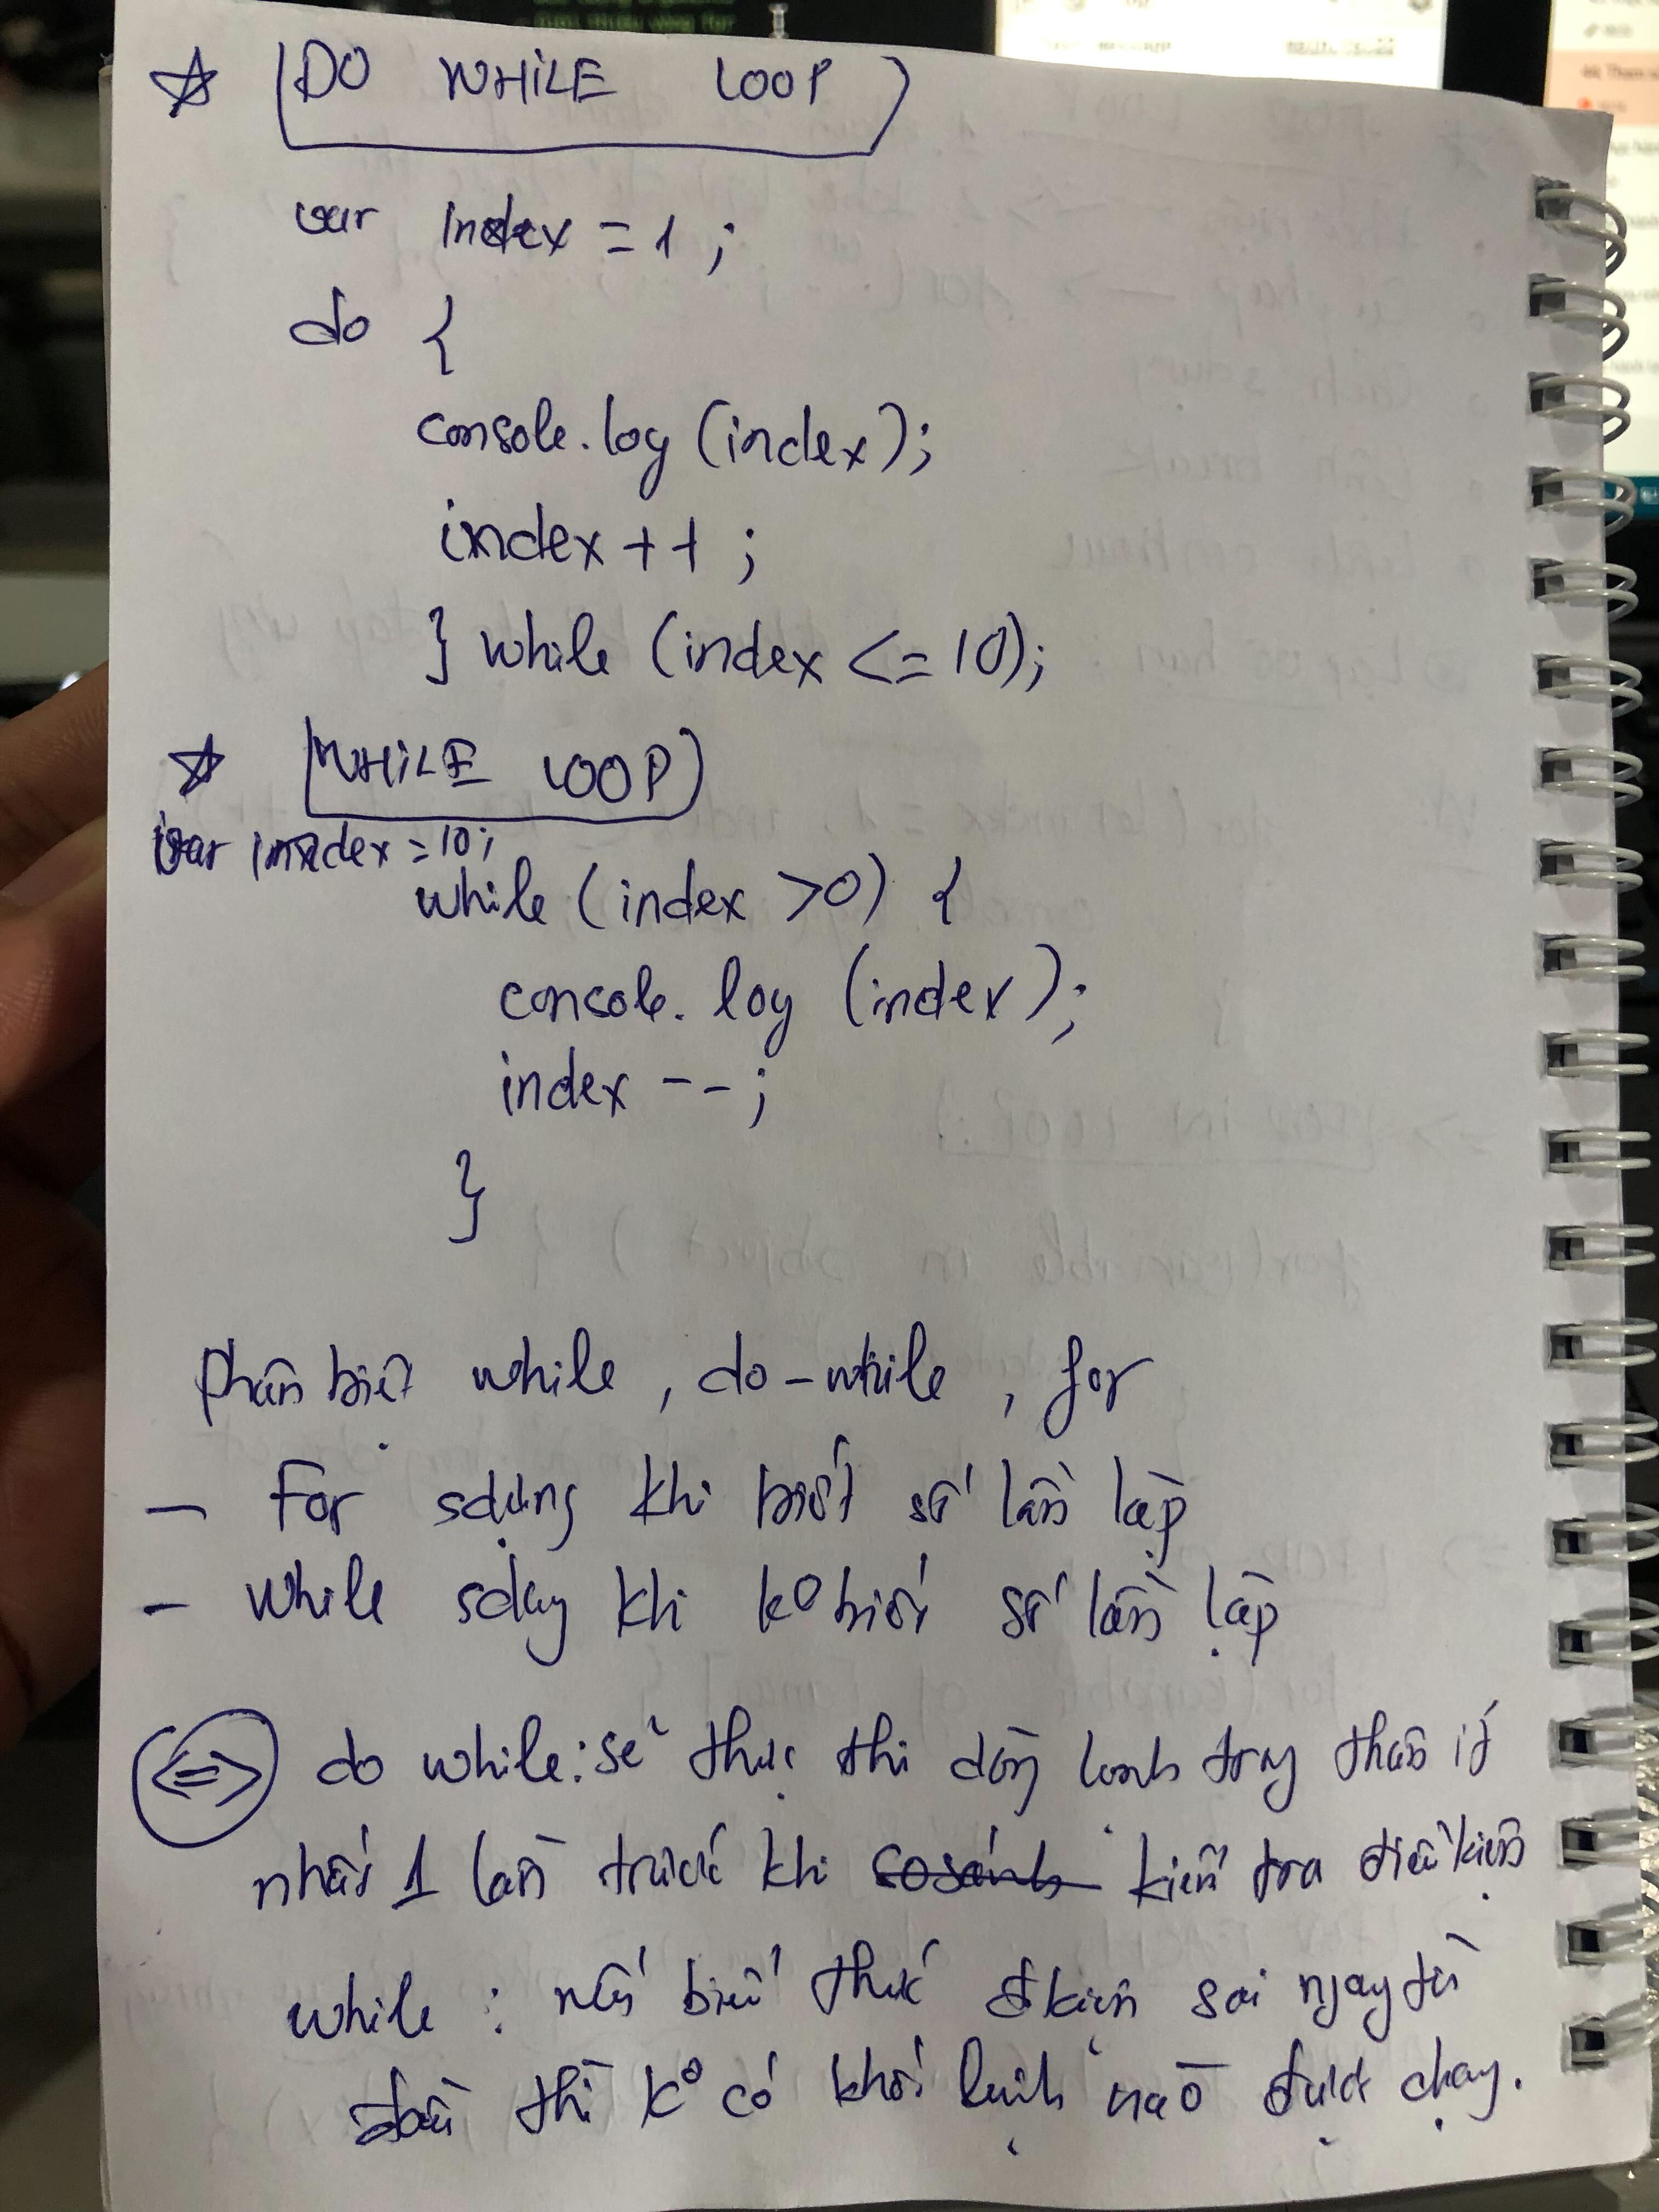 ☆ DO WHILE LOOP
var index = 1 ;
do {
console.log (index);
index ++ ;
} while (index <= 10);
☆ WHILE LOOP
var index = 10;
while (index > 0) {
console. log (index);
index --;
}
phân biệt while , do - while , for
- For sdụng khi biết số lần lặp
- While sdụng khi k⁰ biết số lần lặp
<=> do while : sẽ thực thi dòng lệnh trong thân ít
nhất 1 lần trước khi so sánh kiểm tra điều kiện
while : nếu biểu thức đkiện sai ngay từ
đầu thì k⁰ có khối lệnh nào được chạy.